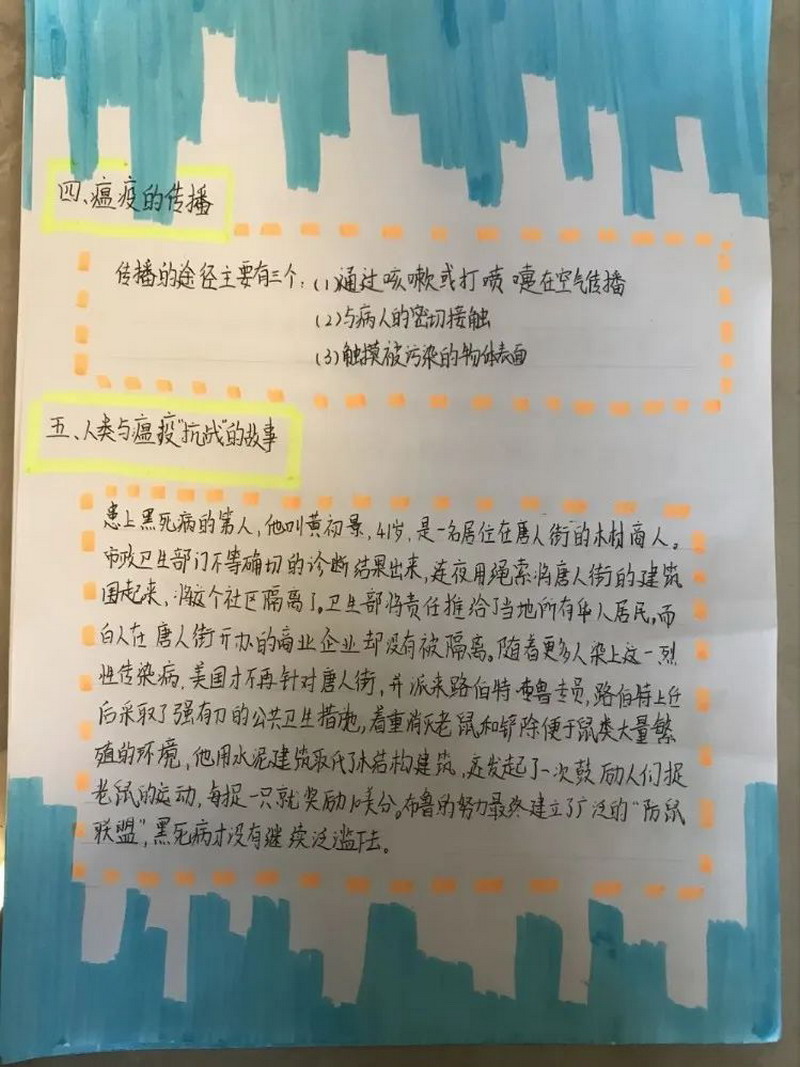 四、瘟疫的传播
传播的途径主要有三个：(1)通过咳嗽或打喷嚏在空气传播
(2)与病人的密切接触
(3)触摸被污染的物体表面
五、人类与瘟疫"抗战"的故事
患上黑死病的第人，他叫黄初景，41岁，是一名居住在唐人街的木材商人。
市政卫生部门不等确切的诊断结果出来，连夜用绳索将唐人街的建筑
围起来，将这个社区隔离了。卫生部将责任推给了当地所有华人居民，而
白人在唐人街开办的商业企业却没有被隔离。随着更多人染上这一烈
性传染病，美国才不再针对唐人街，并派来路伯特·鲁专员，路伯特上任
后采取了强有力的公共卫生措施，着重消灭老鼠和铲除便于鼠类大量繁
殖的环境，他用水泥建筑取代了木结构建筑，还发起了一次鼓励人们捉
老鼠的运动，每捉一只就奖励10美分。布鲁的努力最终建立了广泛的"防鼠
联盟"，黑死病才没有继续泛滥下去。